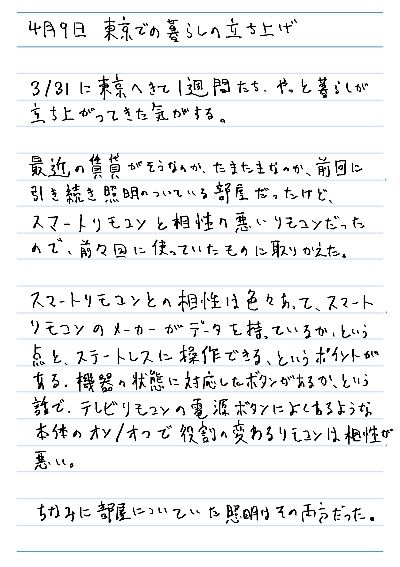 4月9日 東京での暮らしの立ち上げ
3/31に東京へきて1週間たち、やっと暮らしが
立ち上がってきた気がする。
最近の賃貸がそうなのか、たまたまなのか、前回に
引き続き照明のついている部屋だったけど、
スマートリモコンと相性の悪いリモコンだった
ので、前々回に使っていたものに取りかえた。
スマートリモコンとの相性は色々あって、スマート
リモコンのメーカーがデータを持っているか、という
点と、ステートレスに操作できる、というポイントが
ある。機器の状態に対応したボタンがあるか、という
話で、テレビリモコンの電源ボタンによくあるような
本体のオン/オフで役割の変わるリモコンは相性が
悪い。
ちなみに部屋についていた照明はその両方だった。